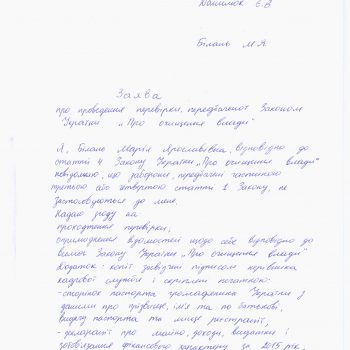 Данилюк Є.В
Білань М.Я.
Заява
про проведення перевірки, передбаченої Законом
України „Про очищення влади"
Я, Білань Марія Ярославівна, відповідно до
статті 4 Закону України „Про очищення влади"
повідомляю, що заборони, передбачені частиною
третьою або четвертою статті 1 Закону, не
застосовуються до мене.
Надаю згоду на
проходження перевірки;
оприлюднення відомостей щодо себе відповідно до
вимог Закону України „Про очищення влади"
Додаток: копії завірені підписом керівника
кадрової служби і скріплені печаткою:
- сторінок паспорта громадянина України з
даними про прізвище, ім'я та по батькові,
видачу паспорта та місце реєстрації;
- декларації про майно, доходи, витрати і
зобов'язання фінансового характеру за 2015 рік;